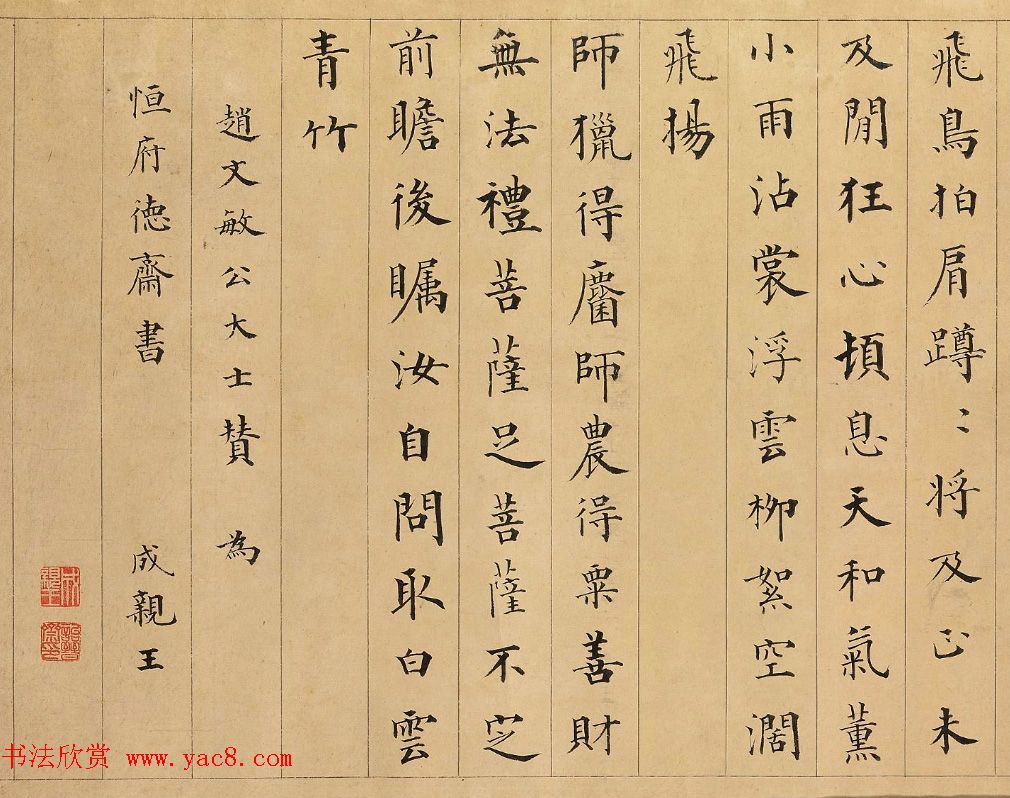 飛鳥拍肩蹲〻将及正未
及閒狂心頓息天和氣薰
小雨沾裳浮雲柳絮空闊
飛揚
師獵得麕師農得粟善財
無法禮菩薩足菩薩不定
前瞻後矚汝自問取白雲
青竹
趙文敏公大士賛 為
恒府德齋書 成親王
书法欣赏 www.yac8.com